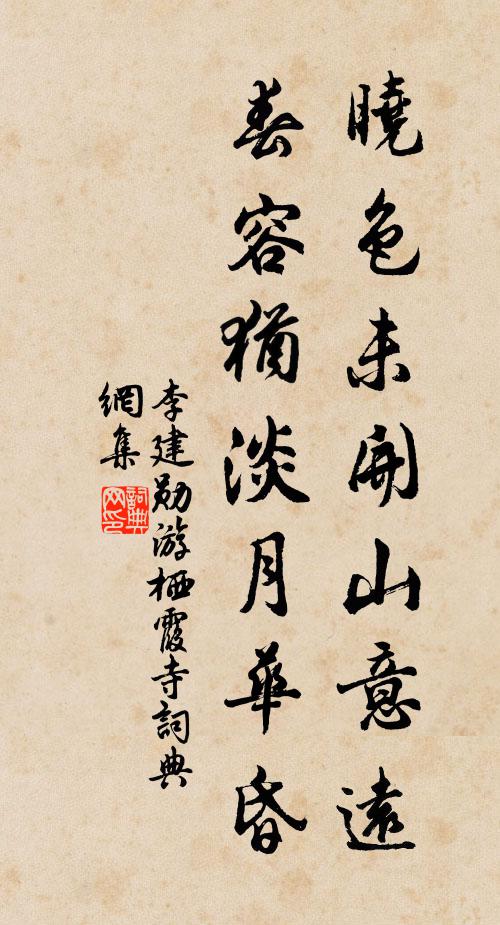 曉色未開山意遠
春容猶淡月華昏
李建勋游栖霞寺詞典
網集
詞典网印